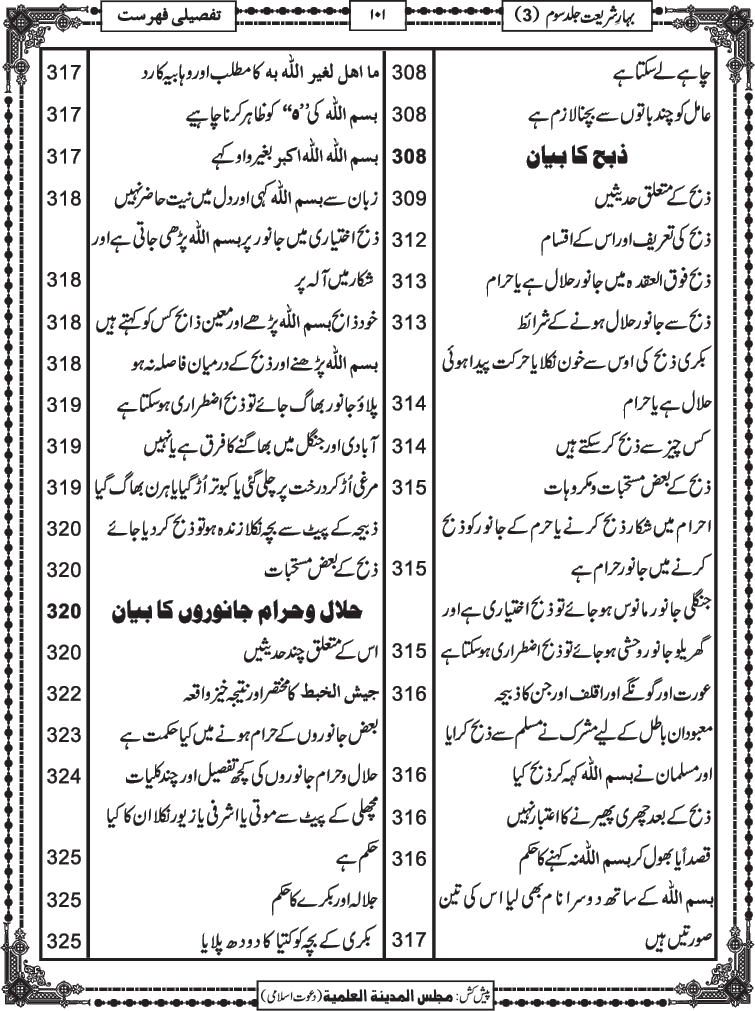 بہارِ شریعت جلد سوم (3)
۱۰۱
تفصیلی فہرست
چاہے لے سکتا ہے 308
عامل کو چند باتوں سے بچنا لازم ہے 308
ذبح کا بیان 308
ذبح کے متعلق حدیثیں 309
ذبح کی تعریف اور اس کے اقسام 312
ذبح فوق العقدہ میں جانور حلال ہے یا حرام 313
ذبح سے جانور حلال ہونے کے شرائط 313
بکری ذبح کی اوس سے خون نکلا یا حرکت پیدا ہوئی
حلال ہے یا حرام 314
کس چیز سے ذبح کر سکتے ہیں 314
ذبح کے بعض مستحبات و مکروہات 315
احرام میں شکار ذبح کرنے یا حرم کے جانور کو ذبح
کرنے میں جانور حرام ہے 315
جنگلی جانور مانوس ہوجائے تو ذبح اختیاری ہے اور
گھریلو جانور وحشی ہوجائے تو ذبح اضطراری ہوسکتا ہے 315
عورت اور گونگے اور اقلف اور جن کا ذبیحہ 316
معبودان باطل کے لیے مشرک نے مسلم سے ذبح کرایا
اور مسلمان نے بسم اللہ کہہ کر ذبح کیا 316
ذبح کے بعد چھری پھیرنے کا اعتبار نہیں 316
قصداً یا بھول کر بسم اللہ نہ کہنے کا حکم 316
بسم اللہ کے ساتھ دوسرا نام بھی لیا اس کی تین
صورتیں ہیں 317
ما اھل لغیر اللہ بہ کا مطلب اور وہابیہ کا رد 317
بسم اللہ کی ”ہ“ کو ظاہر کرنا چاہیے 317
بسم اللہ اللہ اکبر بغیر واو کہے 317
زبان سے بسم اللہ کہی اور دل میں نیت حاضر نہیں 318
ذبح اختیاری میں جانور پر بسم اللہ پڑھی جاتی ہے اور
شکار میں آلہ پر 318
خود ذابح بسم اللہ پڑھے اور معین ذابح کس کو کہتے ہیں 318
بسم اللہ پڑھنے اور ذبح کے درمیان فاصلہ نہ ہو 318
پلاؤ جانور بھاگ جائے تو ذبح اضطراری ہوسکتا ہے 319
آبادی اور جنگل میں بھاگنے کا فرق ہے یا نہیں 319
مرغی اُڑ کر درخت پر چلی گئی یا کبوتر اُڑ گیا یا ہرن بھاگ گیا 319
ذبیحہ کے پیٹ سے بچہ نکلا زندہ ہو تو ذبح کر دیا جائے 320
ذبح کے بعض مستحبات 320
حلال وحرام جانوروں کا بیان 320
اس کے متعلق چند حدیثیں 320
جیش الخبط کا مختصر اور نتیجہ خیز واقعہ 322
بعض جانوروں کے حرام ہونے میں کیا حکمت ہے 323
حلال وحرام جانوروں کی کچھ تفصیل اور چند کلیات 324
مچھلی کے پیٹ سے موتی یا اشرفی یا زیور نکلا ان کا کیا
حکم ہے 325
جلالہ اور بکرے کا حکم 325
بکری کے بچہ کو کتیا کا دودھ پلایا 325
پیش کش: مجلس المدینۃ العلمیۃ (دعوت اسلامی)